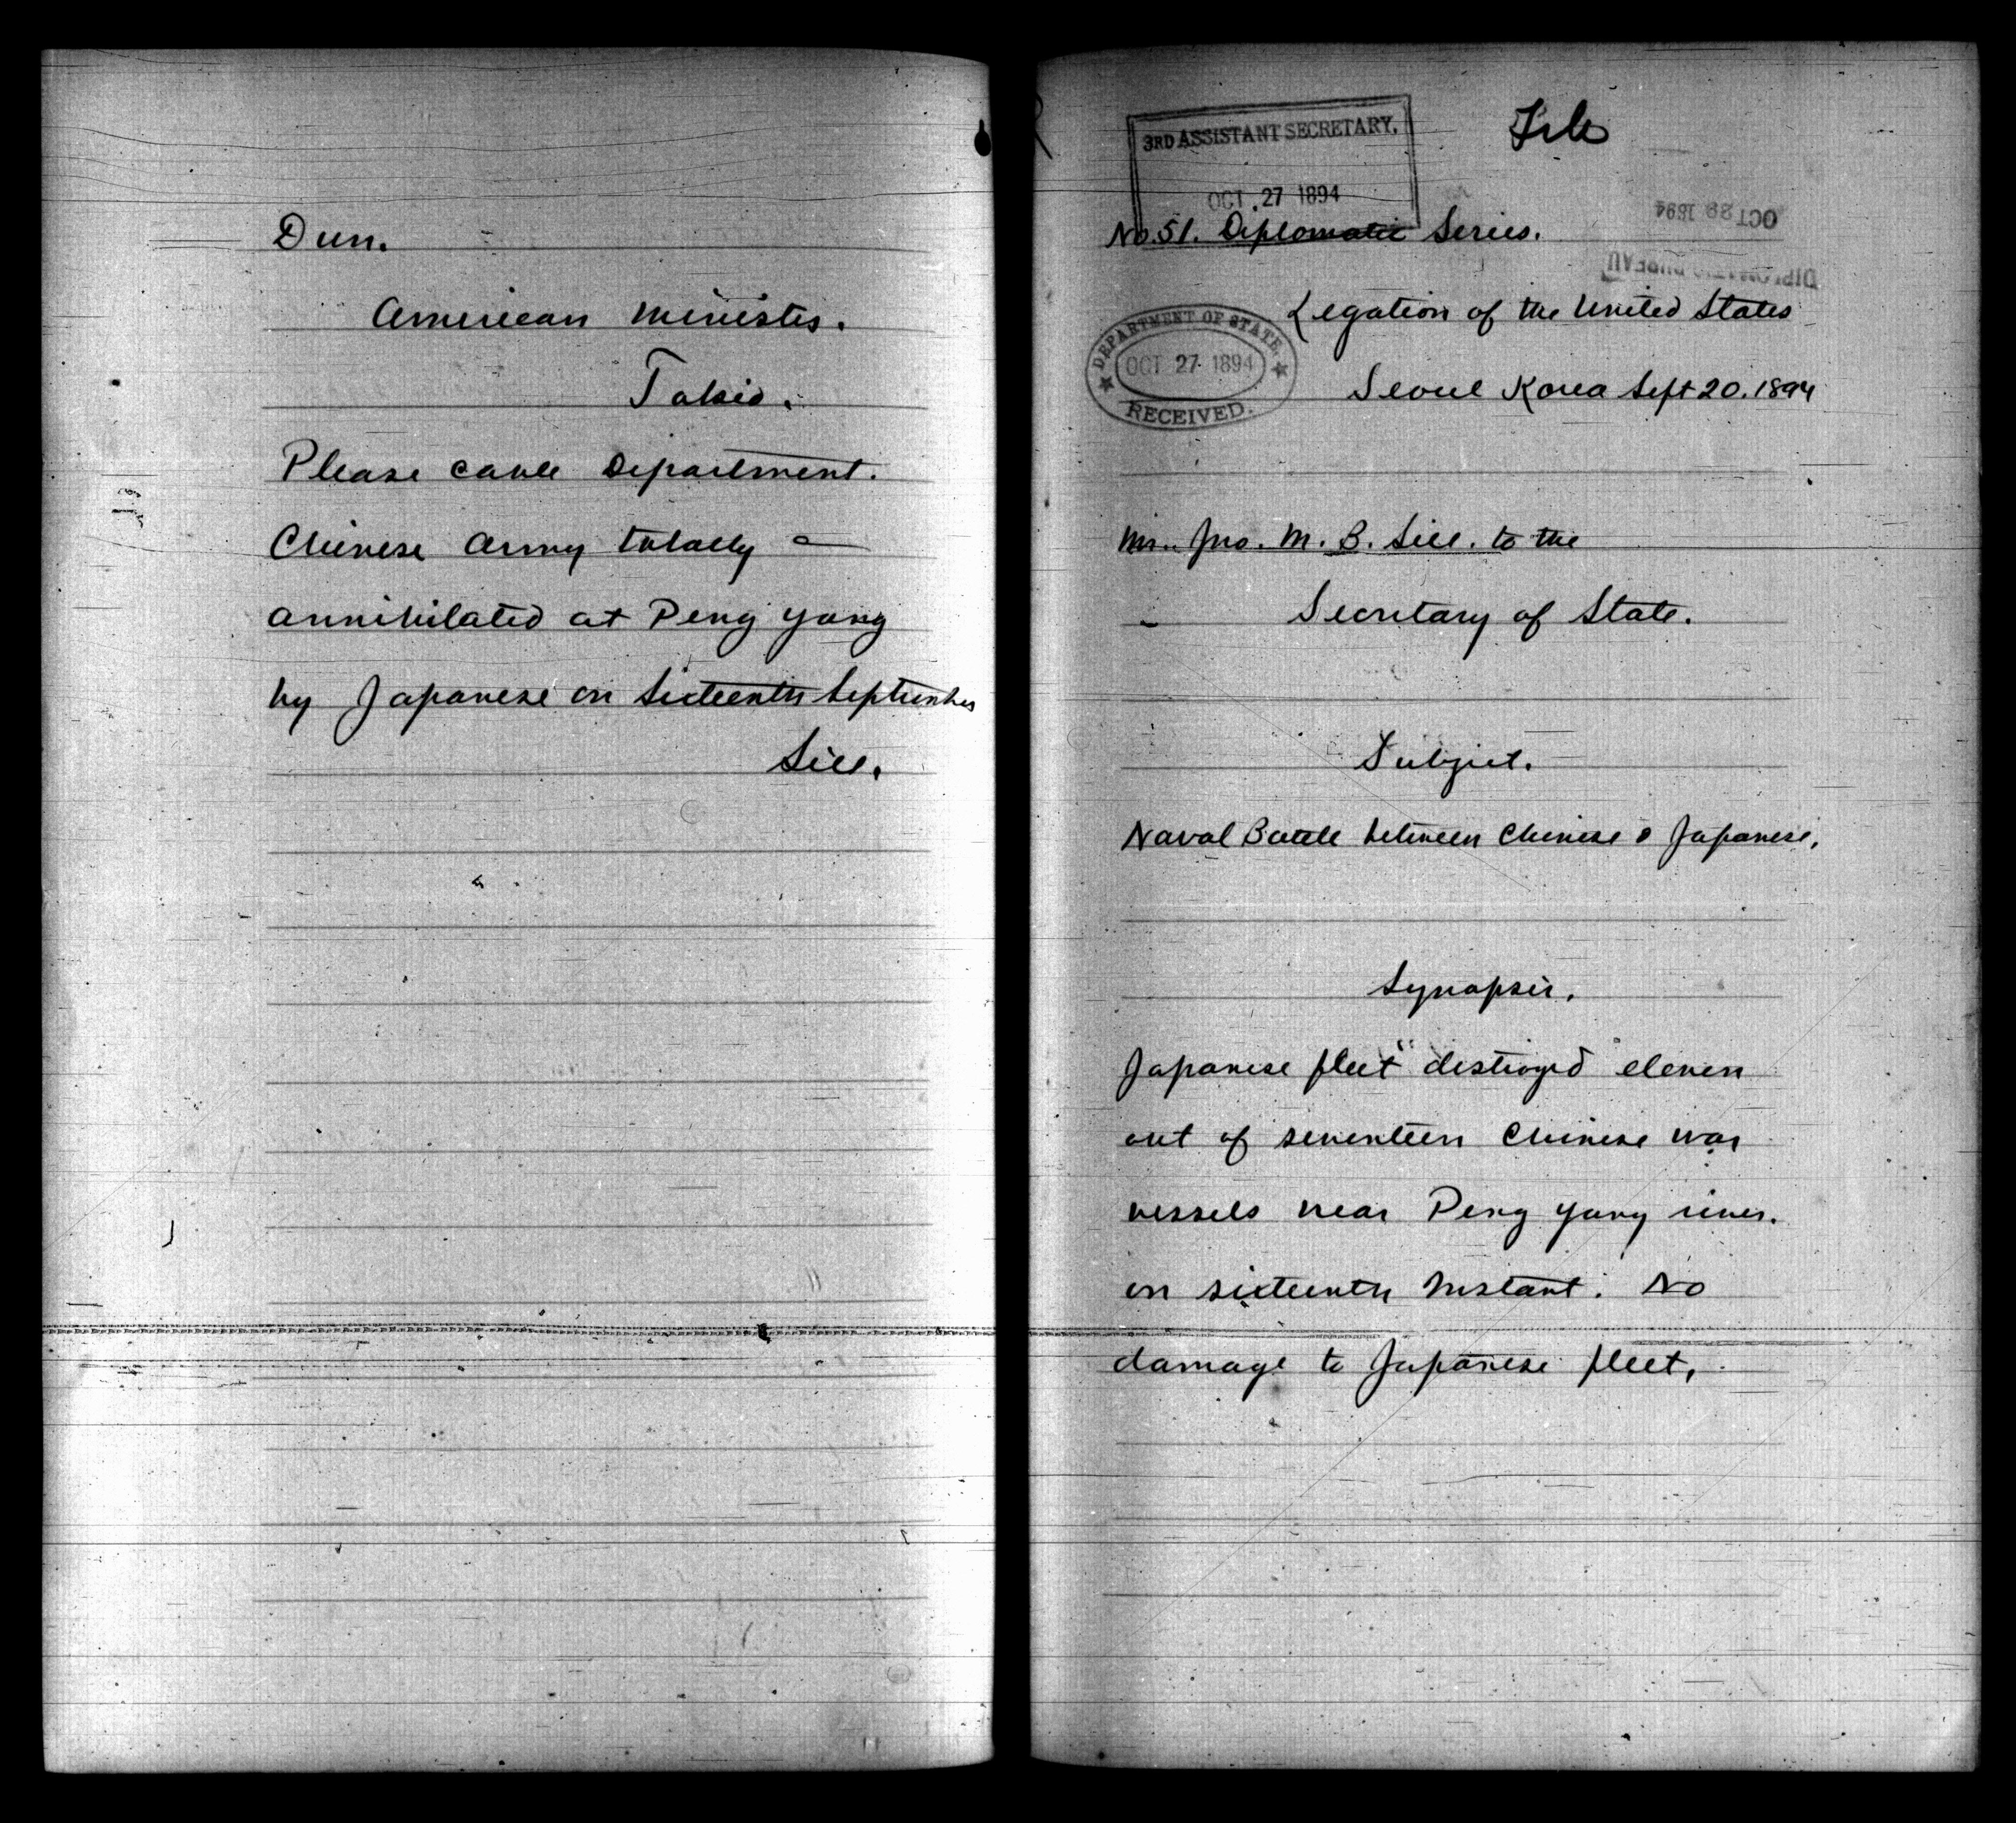 Dun.
American Minister.
Tokio.
Please cable Department.
Chinese Army totally
annihilated at Peng Yang
by Japanese on Sixteenth September
Sill.
3RD ASSISTANT SECRETARY,
OCT 27 1894
File
No. 51. Diplomatic Series.
OCT 29 1894
DIPLOMATIC BUREAU
Legation of the United States
DEPARTMENT OF STATE,
OCT 27 1894
RECEIVED.
Seoul Korea Sept 20. 1894
Mr. Jno. M. B. Sill. to the
Secretary of State.
Subject.
Naval Battle between Chinese & Japanese.
Synopsis.
Japanese fleet "destroyed" eleven
out of seventeen Chinese war
vessels near Peng Yang river.
on sixteenth Instant. No
damage to Japanese fleet.